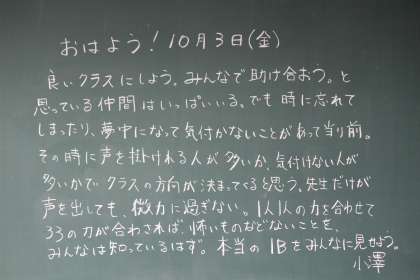 おはよう！10月3日(金)
良いクラスにしよう。みんなで助け合おう。と
思っている仲間はいっぱいいる。でも時に忘れて
しまったり、夢中になって気付かないことがあって当り前。
その時に声を掛けれる人が多いか、気付けない人が
多いかでクラスの方向が決まってくると思う。先生だけが
声を出しても、微力に過ぎない。1人1人の力を合わせて
33の力が合わされば、怖いものなどないことを、
みんなは知っているはず。本当の1Bをみんなに見せよう。
小澤